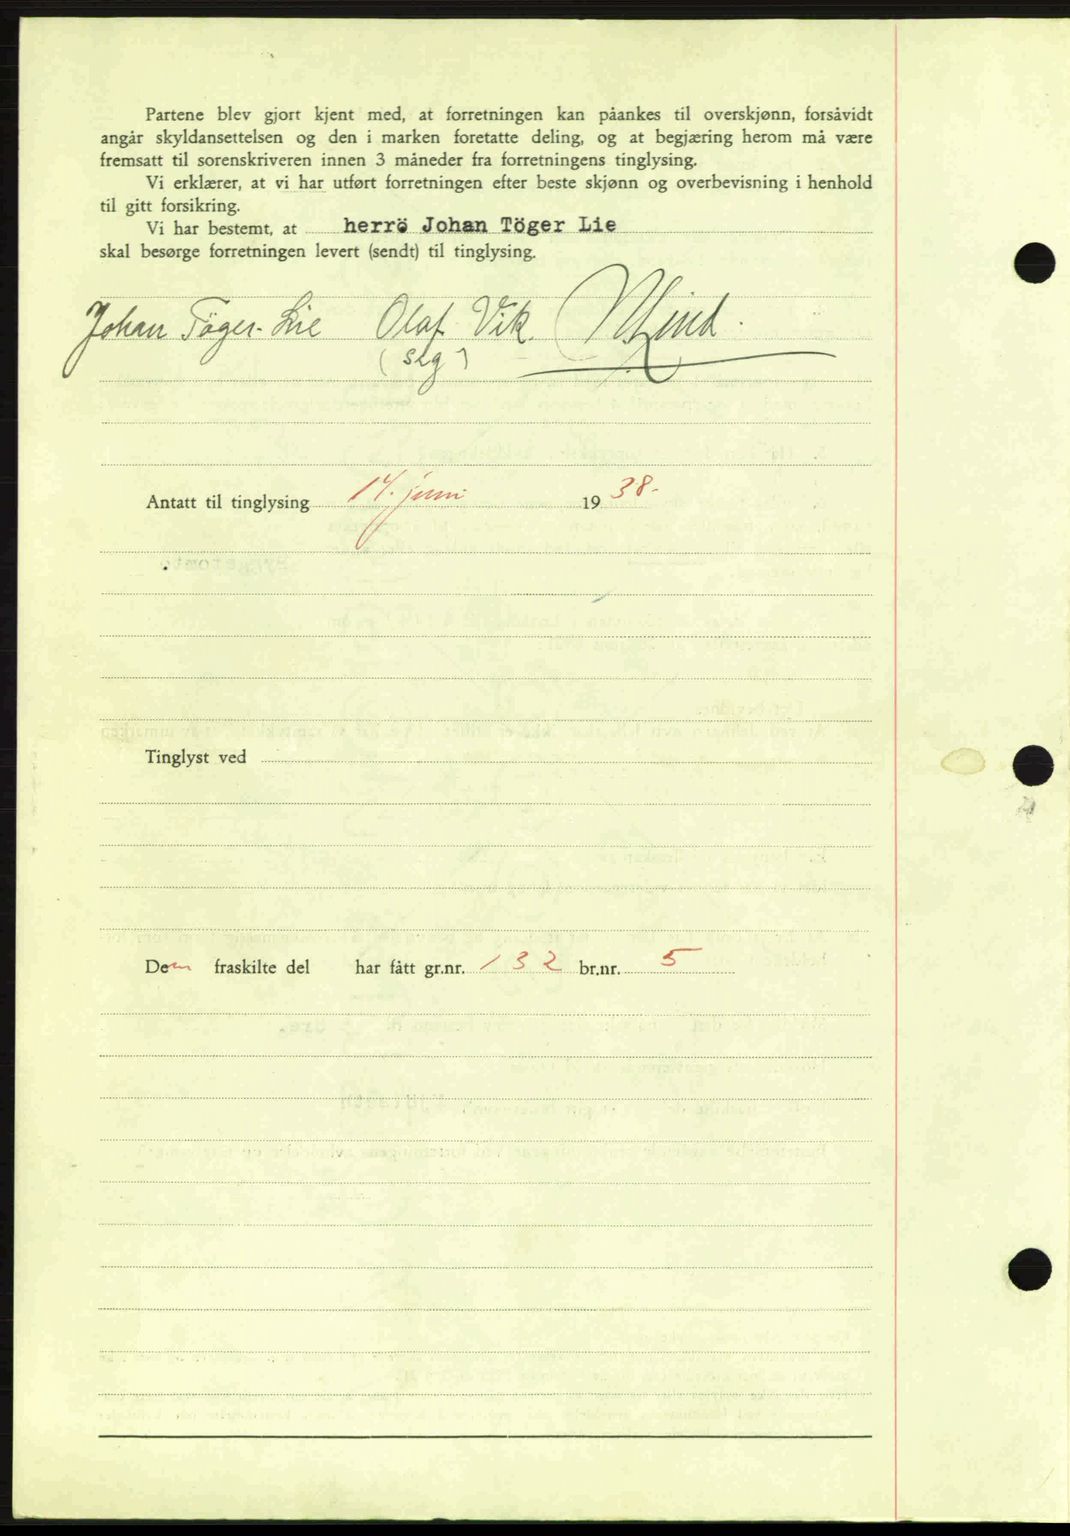 Partene blev gjort kjent med, at forretningen kan påankes til overskjønn, forsåvidt
angår skyldansettelsen og den i marken foretatte deling, og at begjæring herom må være
fremsatt til sorenskriveren innen 3 måneder fra forretningens tinglysing.
Vi erklærer, at vi har utført forretningen efter beste skjønn og overbevisning i henhold
til gitt forsikring.
Vi har bestemt, at herrö Johan Töger Lie
skal besørge forretningen levert (sendt) til tinglysing.
Johan Töger-Lie Olaf Vik. N Lind.
(sign)
Antatt til tinglysing 14. juni 1938.
Tinglyst ved
Den fraskilte del har fått gr.nr. 132 br.nr. 5